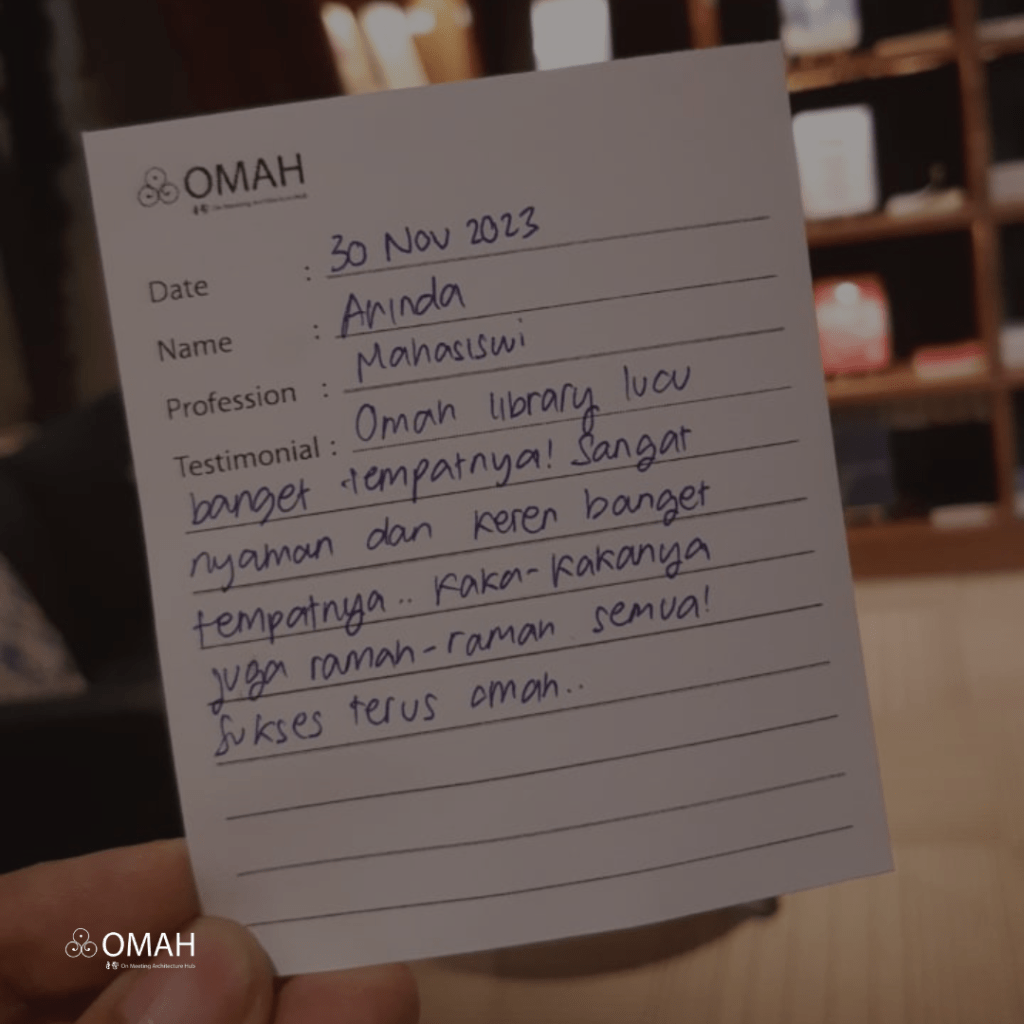 OMAH
On Meeting Architecture Hub
Date : 30 Nov 2023
Name : Arinda
Profession : Mahasiswi
Testimonial : Omah library lucu
banget tempatnya! Sangat
nyaman dan keren banget
tempatnya.. Kaka-Kakanya
juga ramah-ramah semua!
Sukses terus omah..
OMAH
On Meeting Architecture Hub